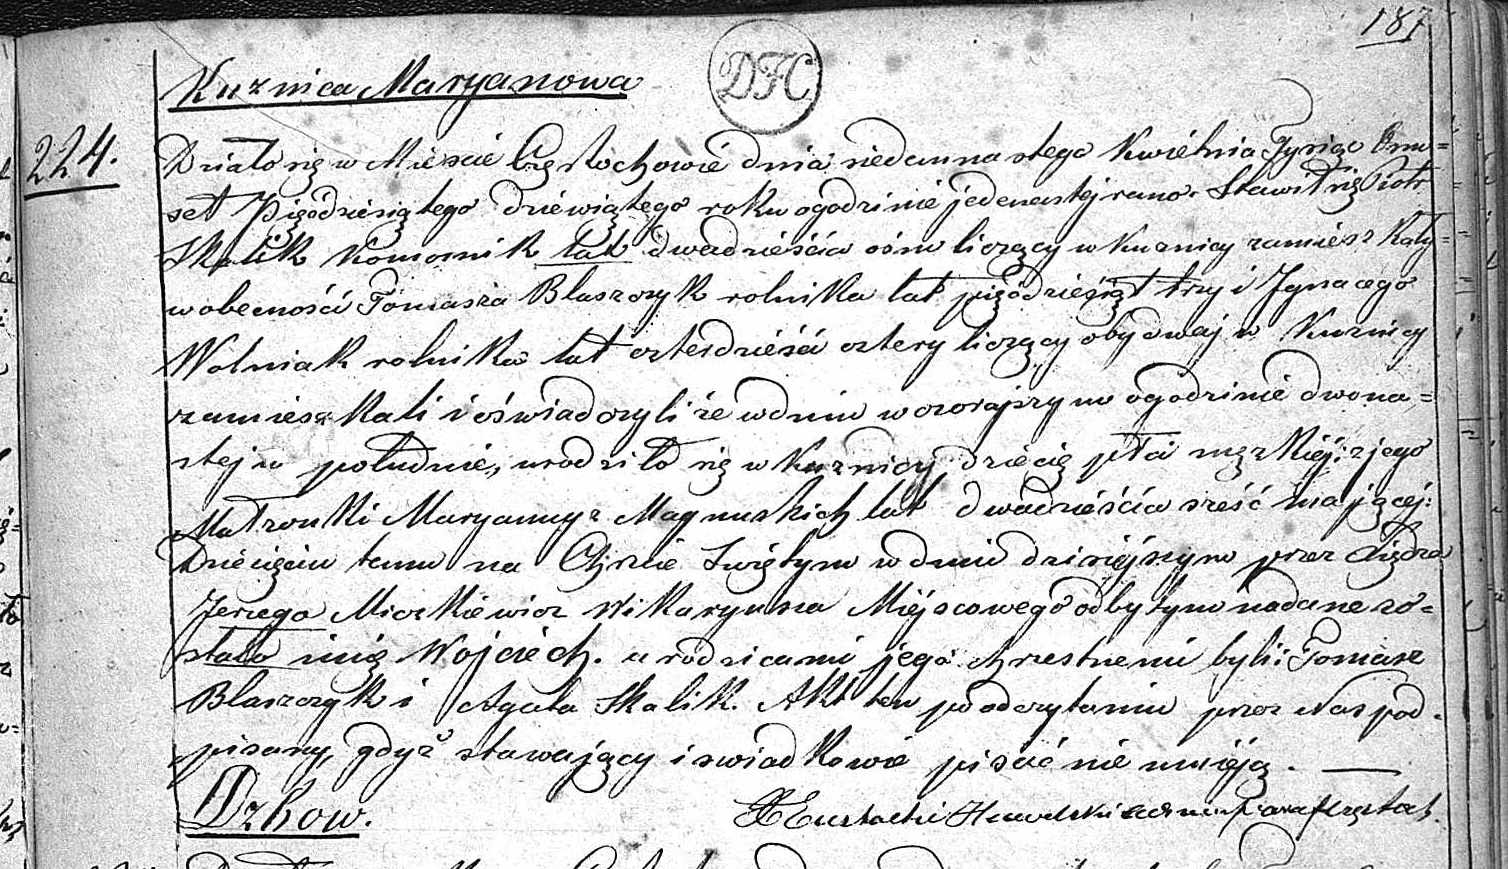 187
DHC
Kuznica Maryanowa
224.
Działo się w Mieście Częstochowie dnia siedemnastego Kwietnia Tysiąc Osm=
set Pięödziesiątego dziewiątego roku ogodzinie jedenastej rano. Stawił się Piotr
Skalik Komornik lat dwadzieścia ośm liczący w Kuznicy zamiesz Kały=
wobecności Tomasza Blaszczyk rolnika lat pięödziesiąt trzy i Jgnacego
Wolniak rolnika lat czterdzieści cztery liczący obydwaj w Kuznicy
zamiesz Kali i oświadczyli że wdniu wczorajszym ogodzinie dwona=
stej w południe, urodziło się w Kuznicy dziecię płci męzkiéj: z jego
Małzonki Maryanny z Magnuskich lat dwadzieścia sześć mającéj:
Dziecięciu temu na Chrzcie Swiętym wdniu dzisiéjszym przez Xiędza
Jerzego Miczkiewicz Wikaryusza Miéjscowego odbytym nadane zo=
stało imię Wojciech. a rodzicami jego chrzestnemi byli: Tomasz
Blaszczyk i Agata Skalik. Akt ten po odczytaniu przez Nas pod=
pisany, gdyż stawający i swiadkowie pisać nie umieją.
Dzbow.
X Eustachi